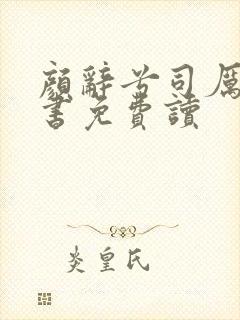 顏辭兮司厲
書免費讀
炎皇氏